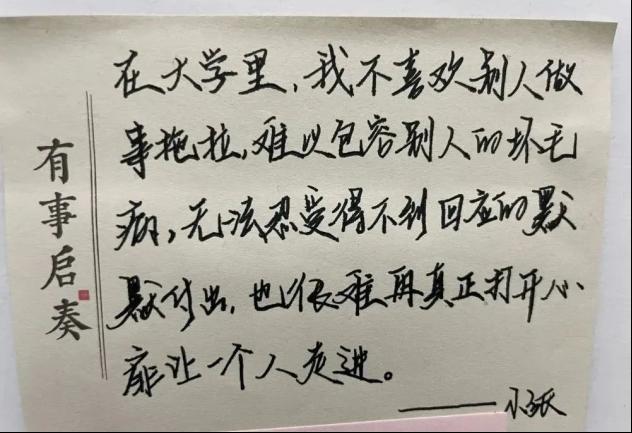 有事启奏
在大学里，我不喜欢别人做
事拖拉，难以包容别人的坏毛
病，无法忍受得不到回应的默
默付出，也很难再真正打开心
扉让一个人走进。
——小张